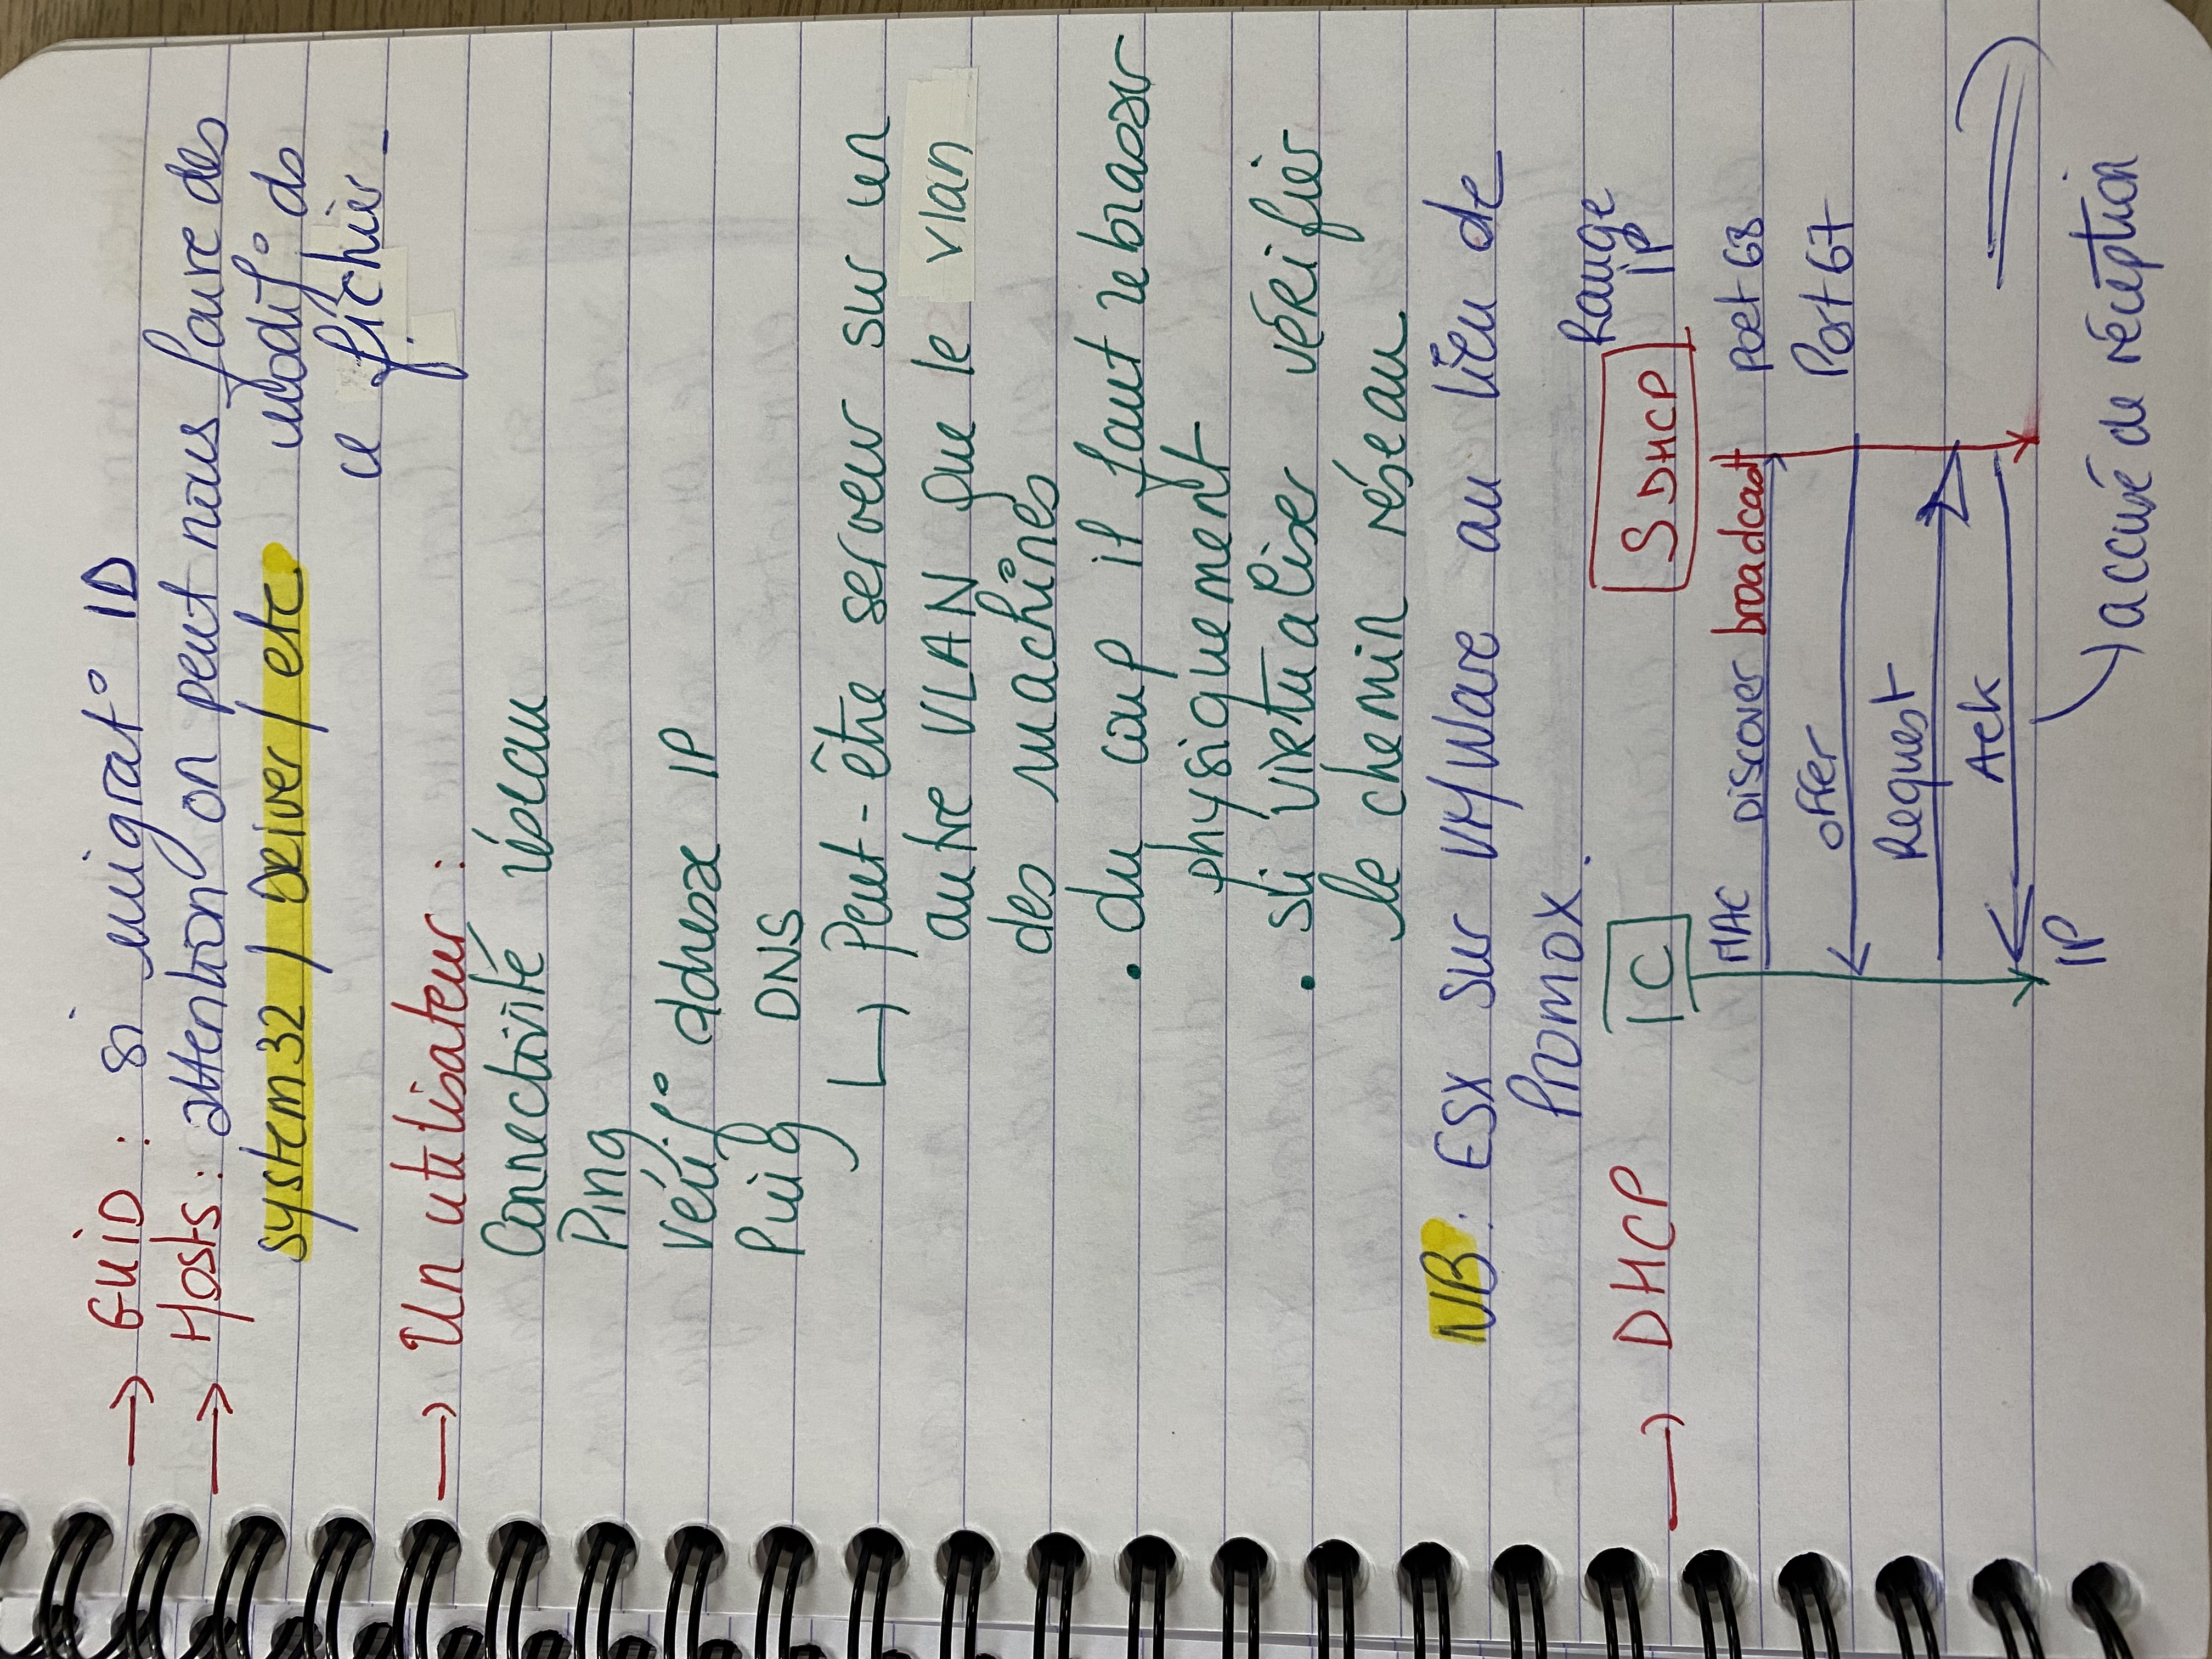 → GUID : si migrat° ID
→ Hosts : attention on peut nous faire des
system32 / Driver / etc. modif° ds
ce fichier.
→ Un utilisateur :
Connectivité réseau
Ping
Vérif° addresse IP
Ping DNS
↳ Peut-être serveur sur un
autre VLAN que le vlan
des machines
• du coup il faut rebrasser
physiquement
• si virtualiser vérifier
le chemin réseau.
NB : ESX sur VM/Ware au lieu de
Promox.
Range
→ DHCP
C
S DHCP
IP
MAC Discover broadcast port 68
offer Port 67
Request
Ack
IP
accusé de réception